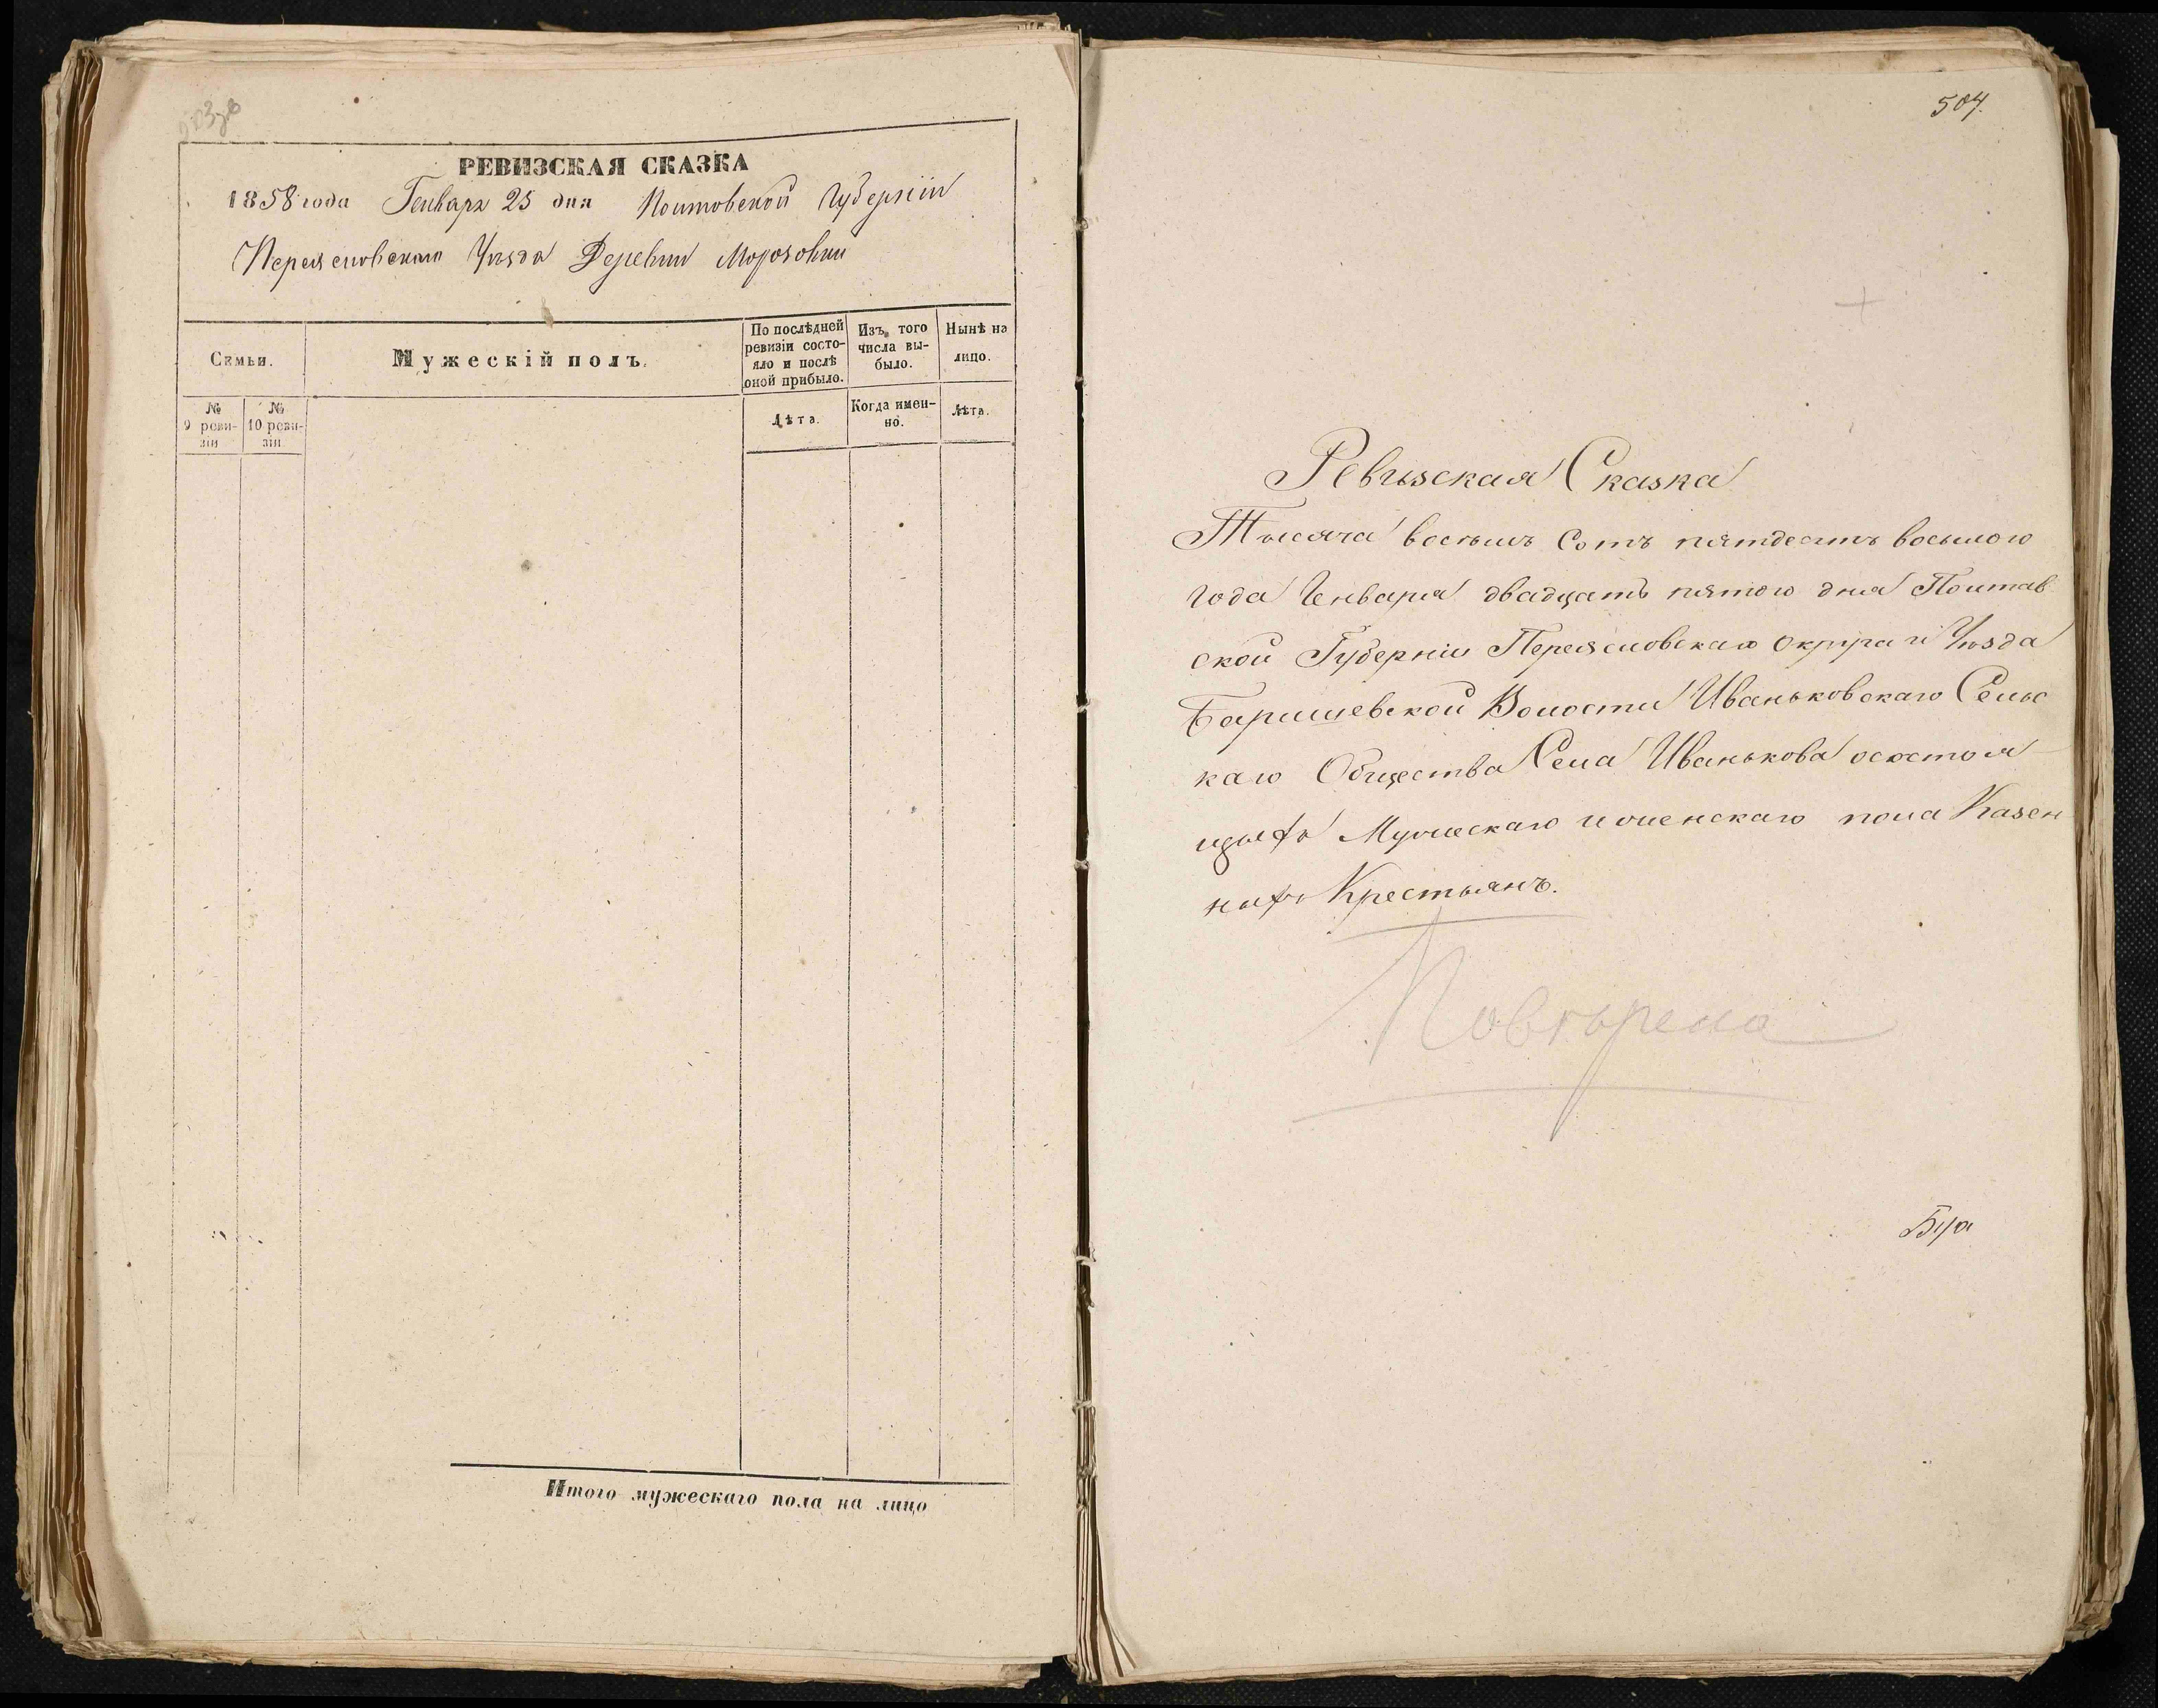 РЕВИЗСКАЯ СКАЗКА
1858 года Генваря 25 дня Полтовской Губерніи
Переяславскаго Уѣзда Деревни Морозовки
Семьи.
Мужескій полъ.
По послѣдней ревизіи состояло и послѣ оной прибыло.
Изъ того числа выбыло.
Нынѣ на лицо.
№ 9 ревизіи
№ 10 ревизіи
Лѣта.
Когда именно.
Лѣта.
Итого мужескаго пола на лицо
504.
Ревизская Сказка
Тысяча восемь Сотъ пятдесятъ восьмого
года Генваря двадцать пятого дня Полтав
ской Губерніи Переясловскаго округа и Уѣзда
Баришевской Волости Иваньковскаго Сельс
каго Общества Села Иванькова о состоя
щыхъ Мужескаго и женскаго пола Казен
ныхъ Крестьянъ.
Повѣрена